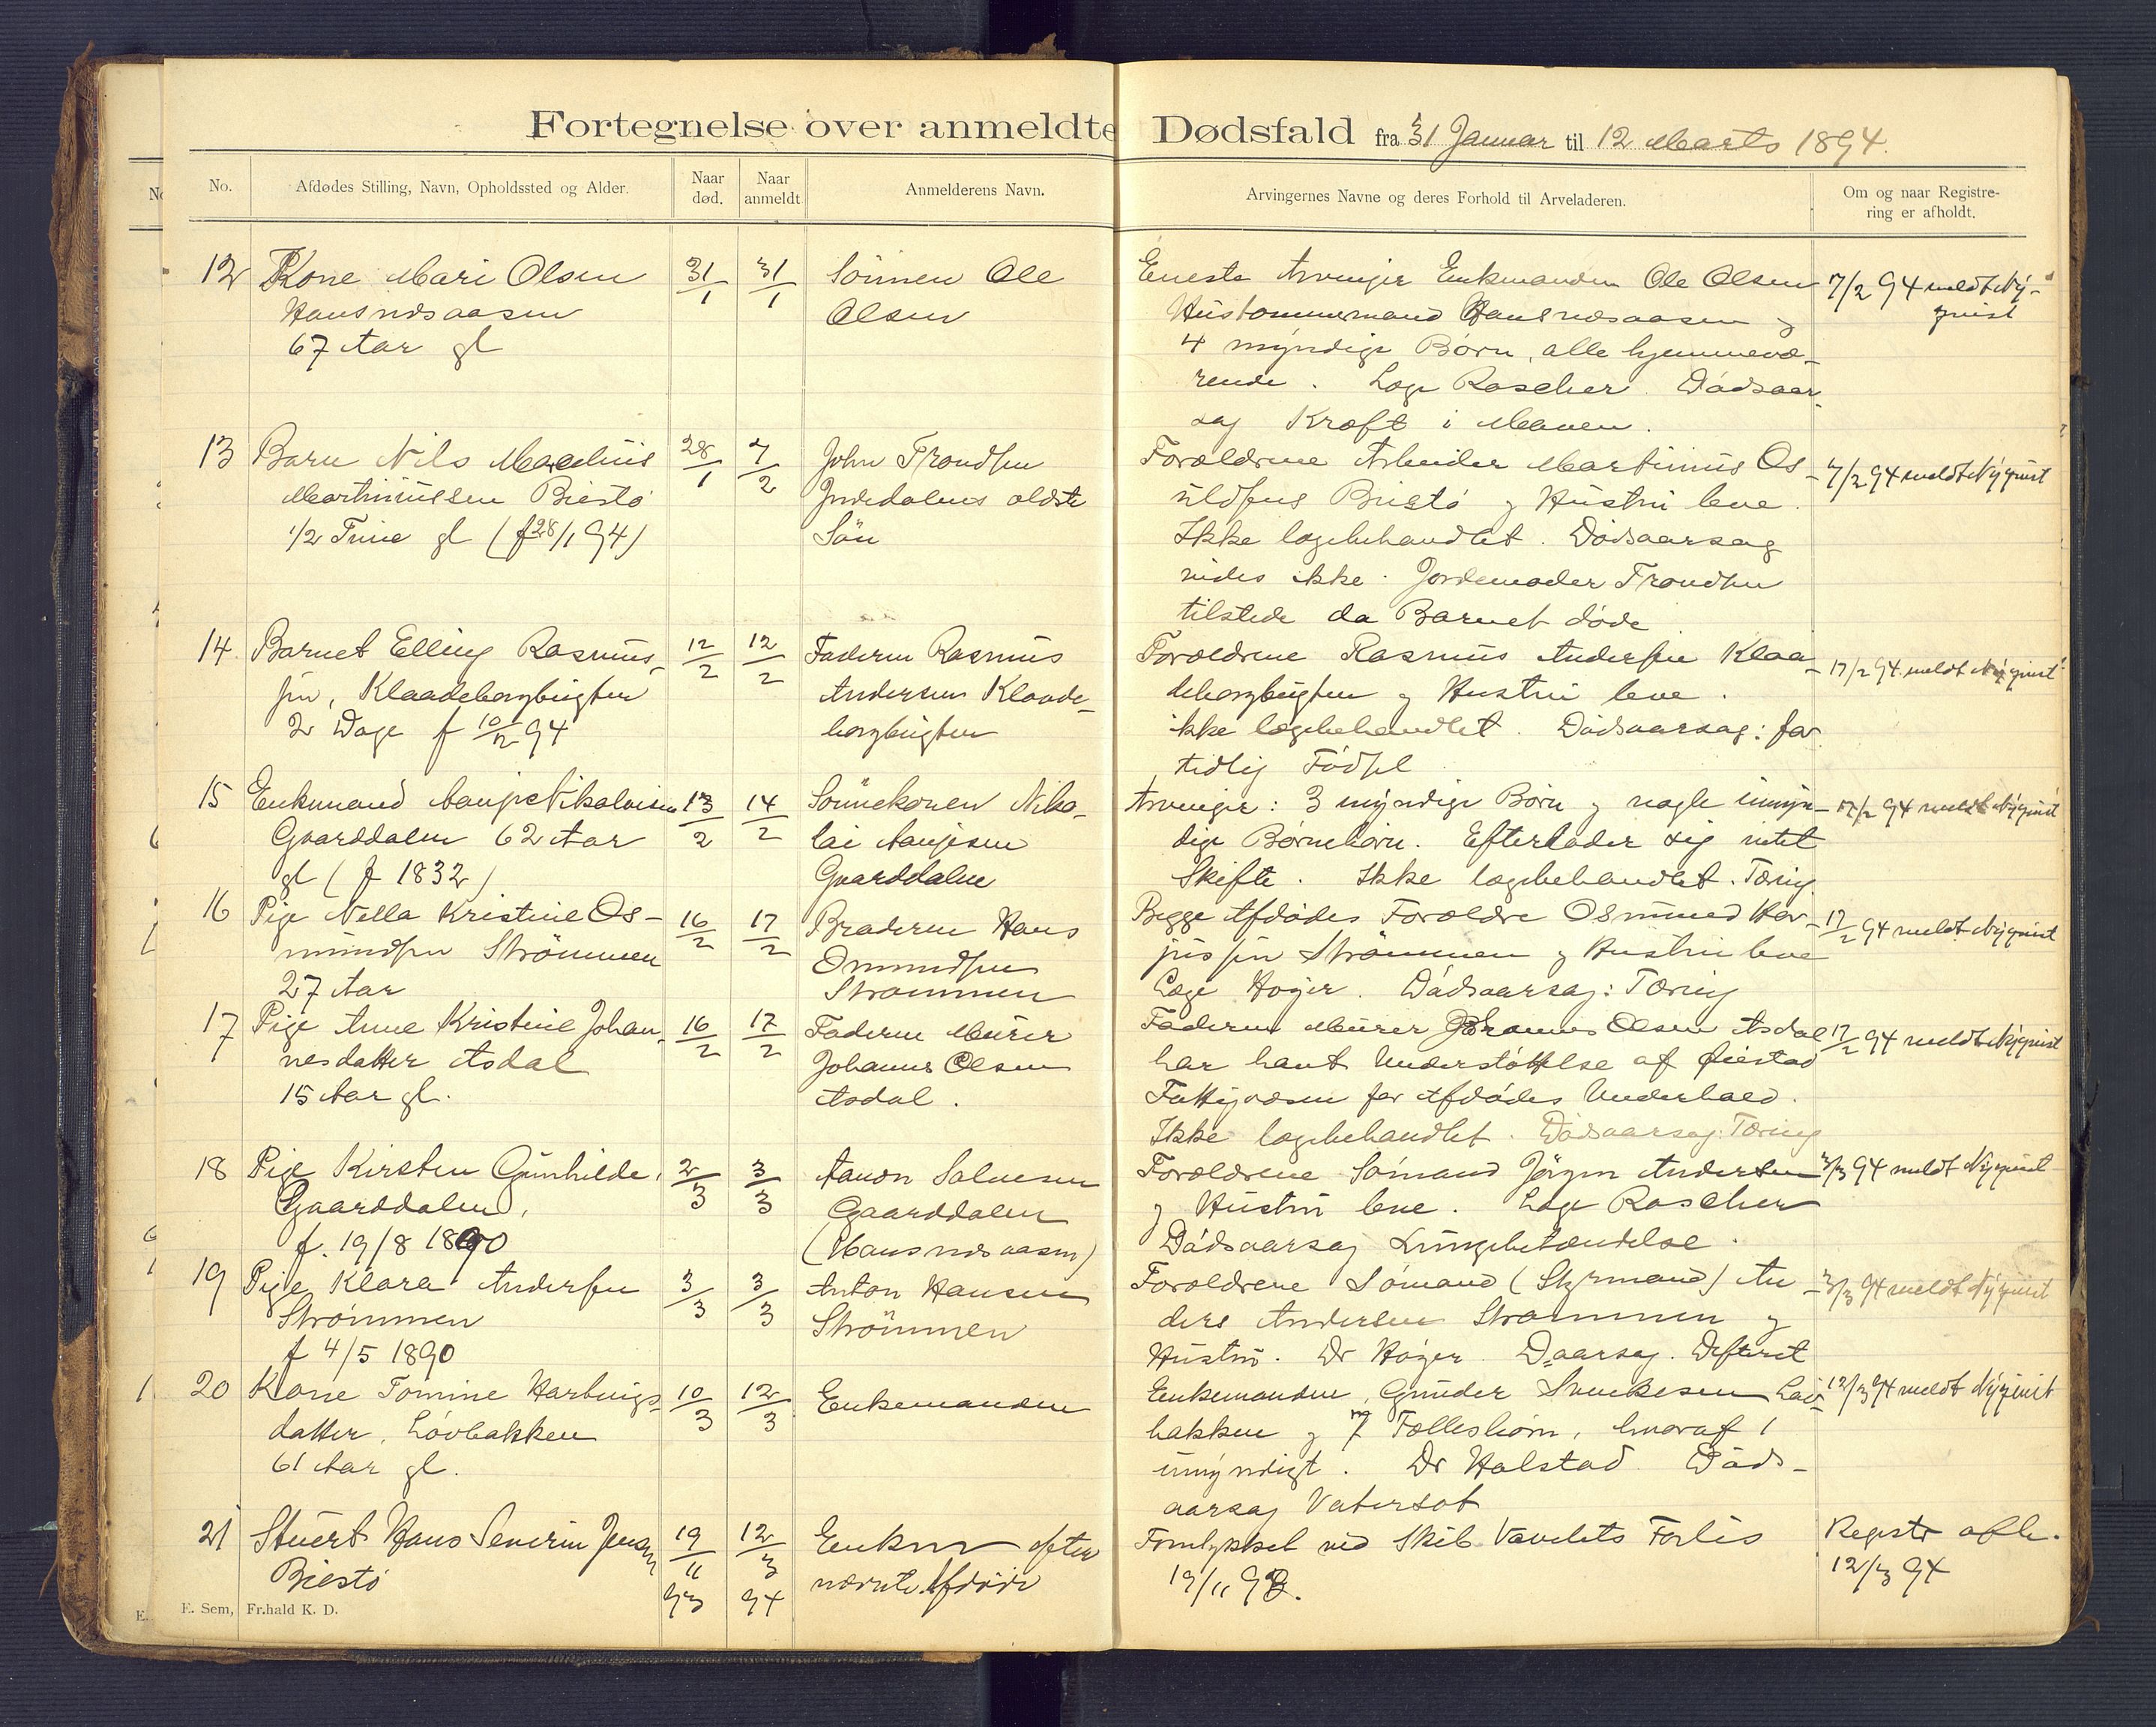 Fortegnelse over anmeldte Dødsfald fra 31 Januar til 12 Marts 1894.
No.
Afdødes Stilling, Navn, Opholdssted og Alder.
Naar død.
Naar anmeldt
Anmelderens Navn.
Arvingernes Navne og deres Forhold til Arveladeren.
Om og naar Registrering er afholdt.
12 Kone Mari Olsen 31/1 31/1 Sönnen Ole
Hansnæsaasen Olsen
67 Aar gl
Eneste Arvinger Enkmanden Ole Olsen
Hustømmermand Hansnæsaasen og
4 myndige Börn, alle hjemmevæ-
rende. Læge Rascher Dödsaar-
sag Kræft i Maven.
7/2 94 meldt Ny-
quist
13 Barn Nils Marelius 28/1 7/2 John Trondsen
Martinussen Biestö Jordedalens ældste
1/2 Time gl (f 28/1 94) Sön
Forældrene Arbeider Martinius Os-
uldsens Biestö og Hustru leve.
Ikke lægebehandlet. Dödsaarsag
vides ikke. Jordemoder Trondsen
tilstede da Barnet döde
7/2 94 meldt Nyquist
14 Barnet Elling Rasmus- 12/2 12/2 Faderen Rasmus
sen, Klaadeborgbugten Andersen Klaade-
2 Dage f 10/2 94 borgbugten
Forældrene Rasmus Andersen Klaa-
deborgbugten og Hustru leve.
ikke lægebehandlet. Dödsaarsag: for
tidlig Födsel
17/2 94 meldt Nyquist
15 Enkmand Aanje Nikolaisen 13/2 14/2 Sönnekonen Niko-
Gaarddalen 62 Aar lai Aanjesen
gl (f 1832) Gaarddalen
Arvinger: 3 myndige Börn og nogle umyn-
dige Börnebörn. Efterlader sig intet
Skifte. Ikke lægebehandlet. Tæring
17/2 94 meldt Nyquist
16 Pige Nella Kristine Os- 16/2 17/2 Broderen Hans
mundsen Strömmen Osmundsen
27 Aar Strömmen
Begge Afdödes Forældre Osmund
Strömmen og Hustru leve
Læge Höyer. Dödsaarsag: Tæring
17/2 94 meldt Nyquist
17 Pige Anne Kristine Johan- 16/2 17/2 Faderen Murer
nesdatter Asdal Johannes Olsen
15 Aar gl. Asdal.
Faderen Murer Johannes Olsen Asdal
har havt Understöttelse af Öiestad
Fattigvæsen for Afdödes Underhold.
Ikke lægebehandlet. Dödsaarsag: Tæring
17/2 94 meldt Nyquist
18 Pige Kirsten Gunhilde 2/3 3/3 Aanon Salvesen
Gaarddalen, Gaarddalen
f. 19/8 1890 (Hansnæsaasen)
Forældrene Sömand Jörgen Andersen
og Hustru leve. Læge Rascher
Dödsaarsag Lungebetændelse.
3/3 94 meldt Nyquist
19 Pige Klara Andersen 3/3 3/3 Anton Hansen
Strömmen Strömmen
f 4/5 1890
Forældrene Sömand (Styrmand) An-
ders Andersen Strömmen og
Hustru. Dr Höyer. Daarsag. Difterit
3/3 94 meldt Nyquist
20 Kone Tomine Hartvigs- 10/3 12/3 Enkemanden
datter, Lövbakken
61 Aar gl.
Enkemanden, Gunder Svenkesen Löv-
bakken og 7 Fællesbörn, hvoraf 1
umyndigt. Dr Halstad Döds-
aarsag Vatersot
12/3 94 meldt Nyquist
21 Stuert Hans Severin Jensen 19/11 93 12/3 94 Enken efter
Biestö nævnte Afdöde
Forulykket ved Skib Forlis
19/11 93.
Registr afh.
12/3 94
E. Sem, Fr.hald K. D.